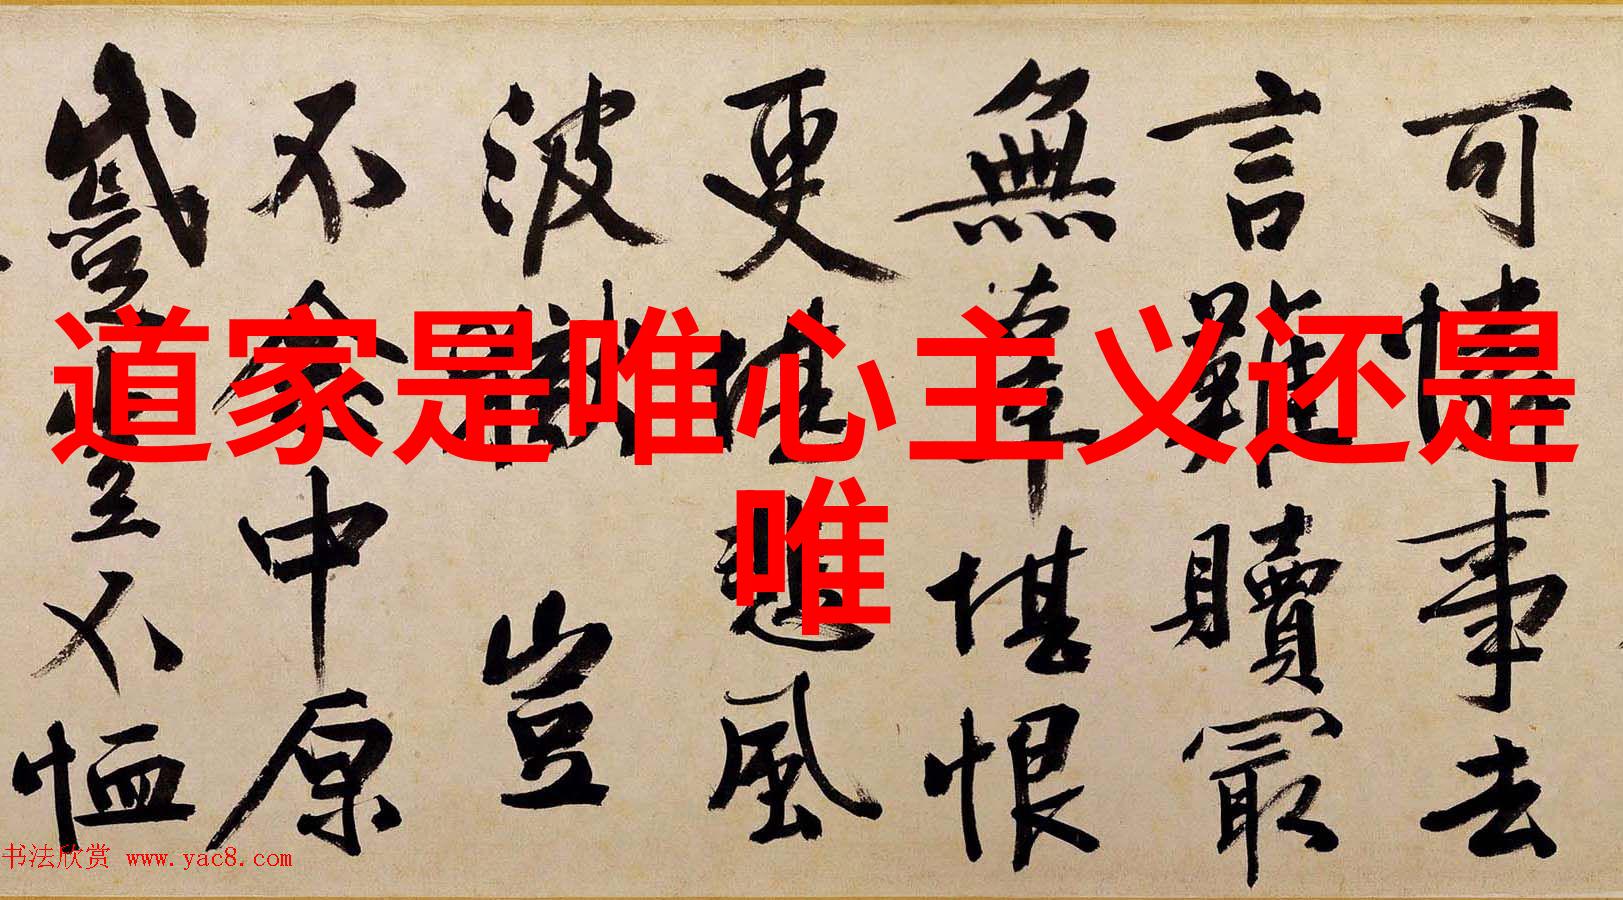 可憐事去
言難贖最
無辜堪恨
更堪悲風
波獄 豈
不念中原
蹙豈不恤
道家是唯心主义还是
唯
书法欣赏 www.yac8.com